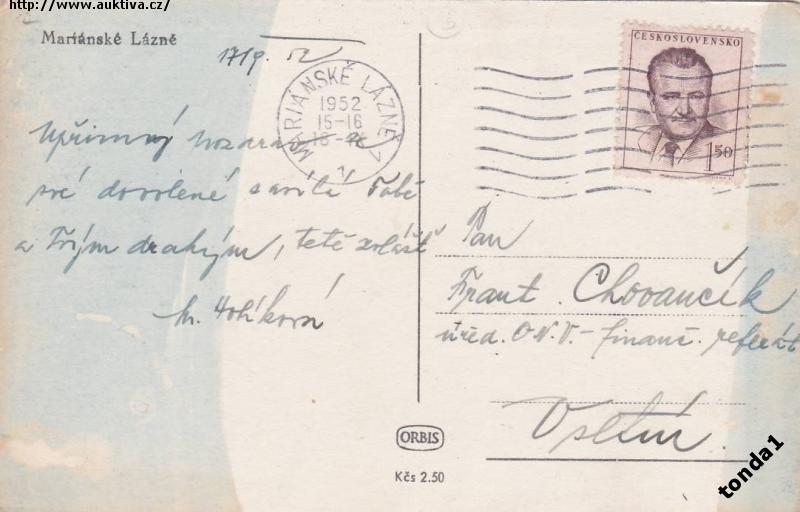 http://www.auktiva.cz/
Mariánské Lázně
17/9. 52
MARIÁNSKÉ LÁZNĚ 1
1952
15-16
ČESKOSLOVENSKO
1 50
Upřímný pozdrav ze
své dovolené zasílá Tobě
a Tvým drahým, tetě zvlášť
M. Holíková
Pan
Frant. Chovančík
úřed. O.N.V. - finanč. referát
Vsetín.
ORBIS
Kčs 2.50
tonda1